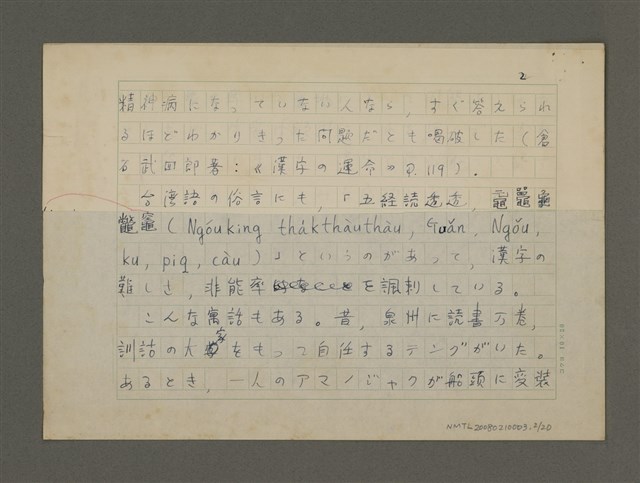 2
精神病になっていない人なら，すぐ答えられ
るほどわかりきった問題だとも喝破した（倉
石武四郎著：《漢字の運命》P.119）．
台湾語の俗言にも，「五経読透透，黿鼉龜
鼈竈（Ngóuking thákthàuthàu, Guǎn, Ngǒu,
ku, piq, càu）」というのがあって，漢字の
難しさ，非能率を諷刺している。
こんな寓話もある。昔，泉州に読書万巻，
訓詁の大家をもって自任するテングがいた。
あるとき，一人のアマノジャクが船頭に変装
NMTL20080210003.2/20